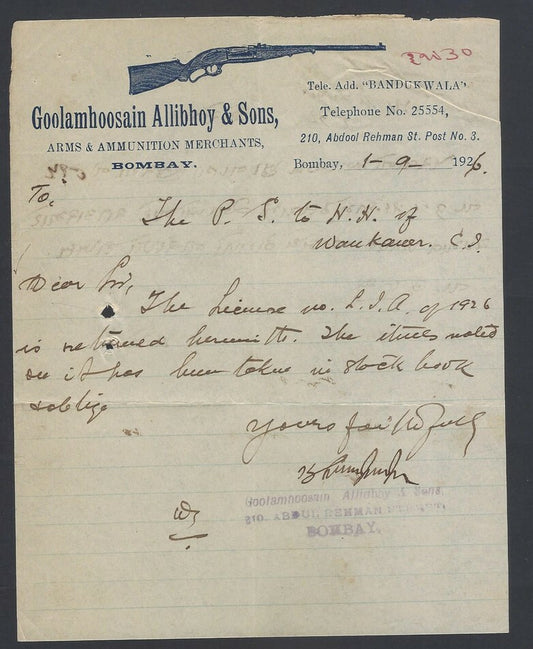 29030
Goolamhoosain Allibhoy & Sons,
ARMS & AMMUNITION MERCHANTS,
BOMBAY.
Tele. Add. "BANDUKWALA"
Telephone No. 25554,
210, Abdool Rehman St. Post No. 3.
Bombay, 1-9- 1926.
To,
The P. S. to H. H. of
Wankaner. C.I.
Dear Sir,
The License no. L.I.A. of 1926
is returned herewith. The items noted
on it has been taken in stock book
& oblige
Yours faithfully
Goolamhoosain Allibhoy & Sons,
210, ABDUL REHMAN STREET,
BOMBAY.